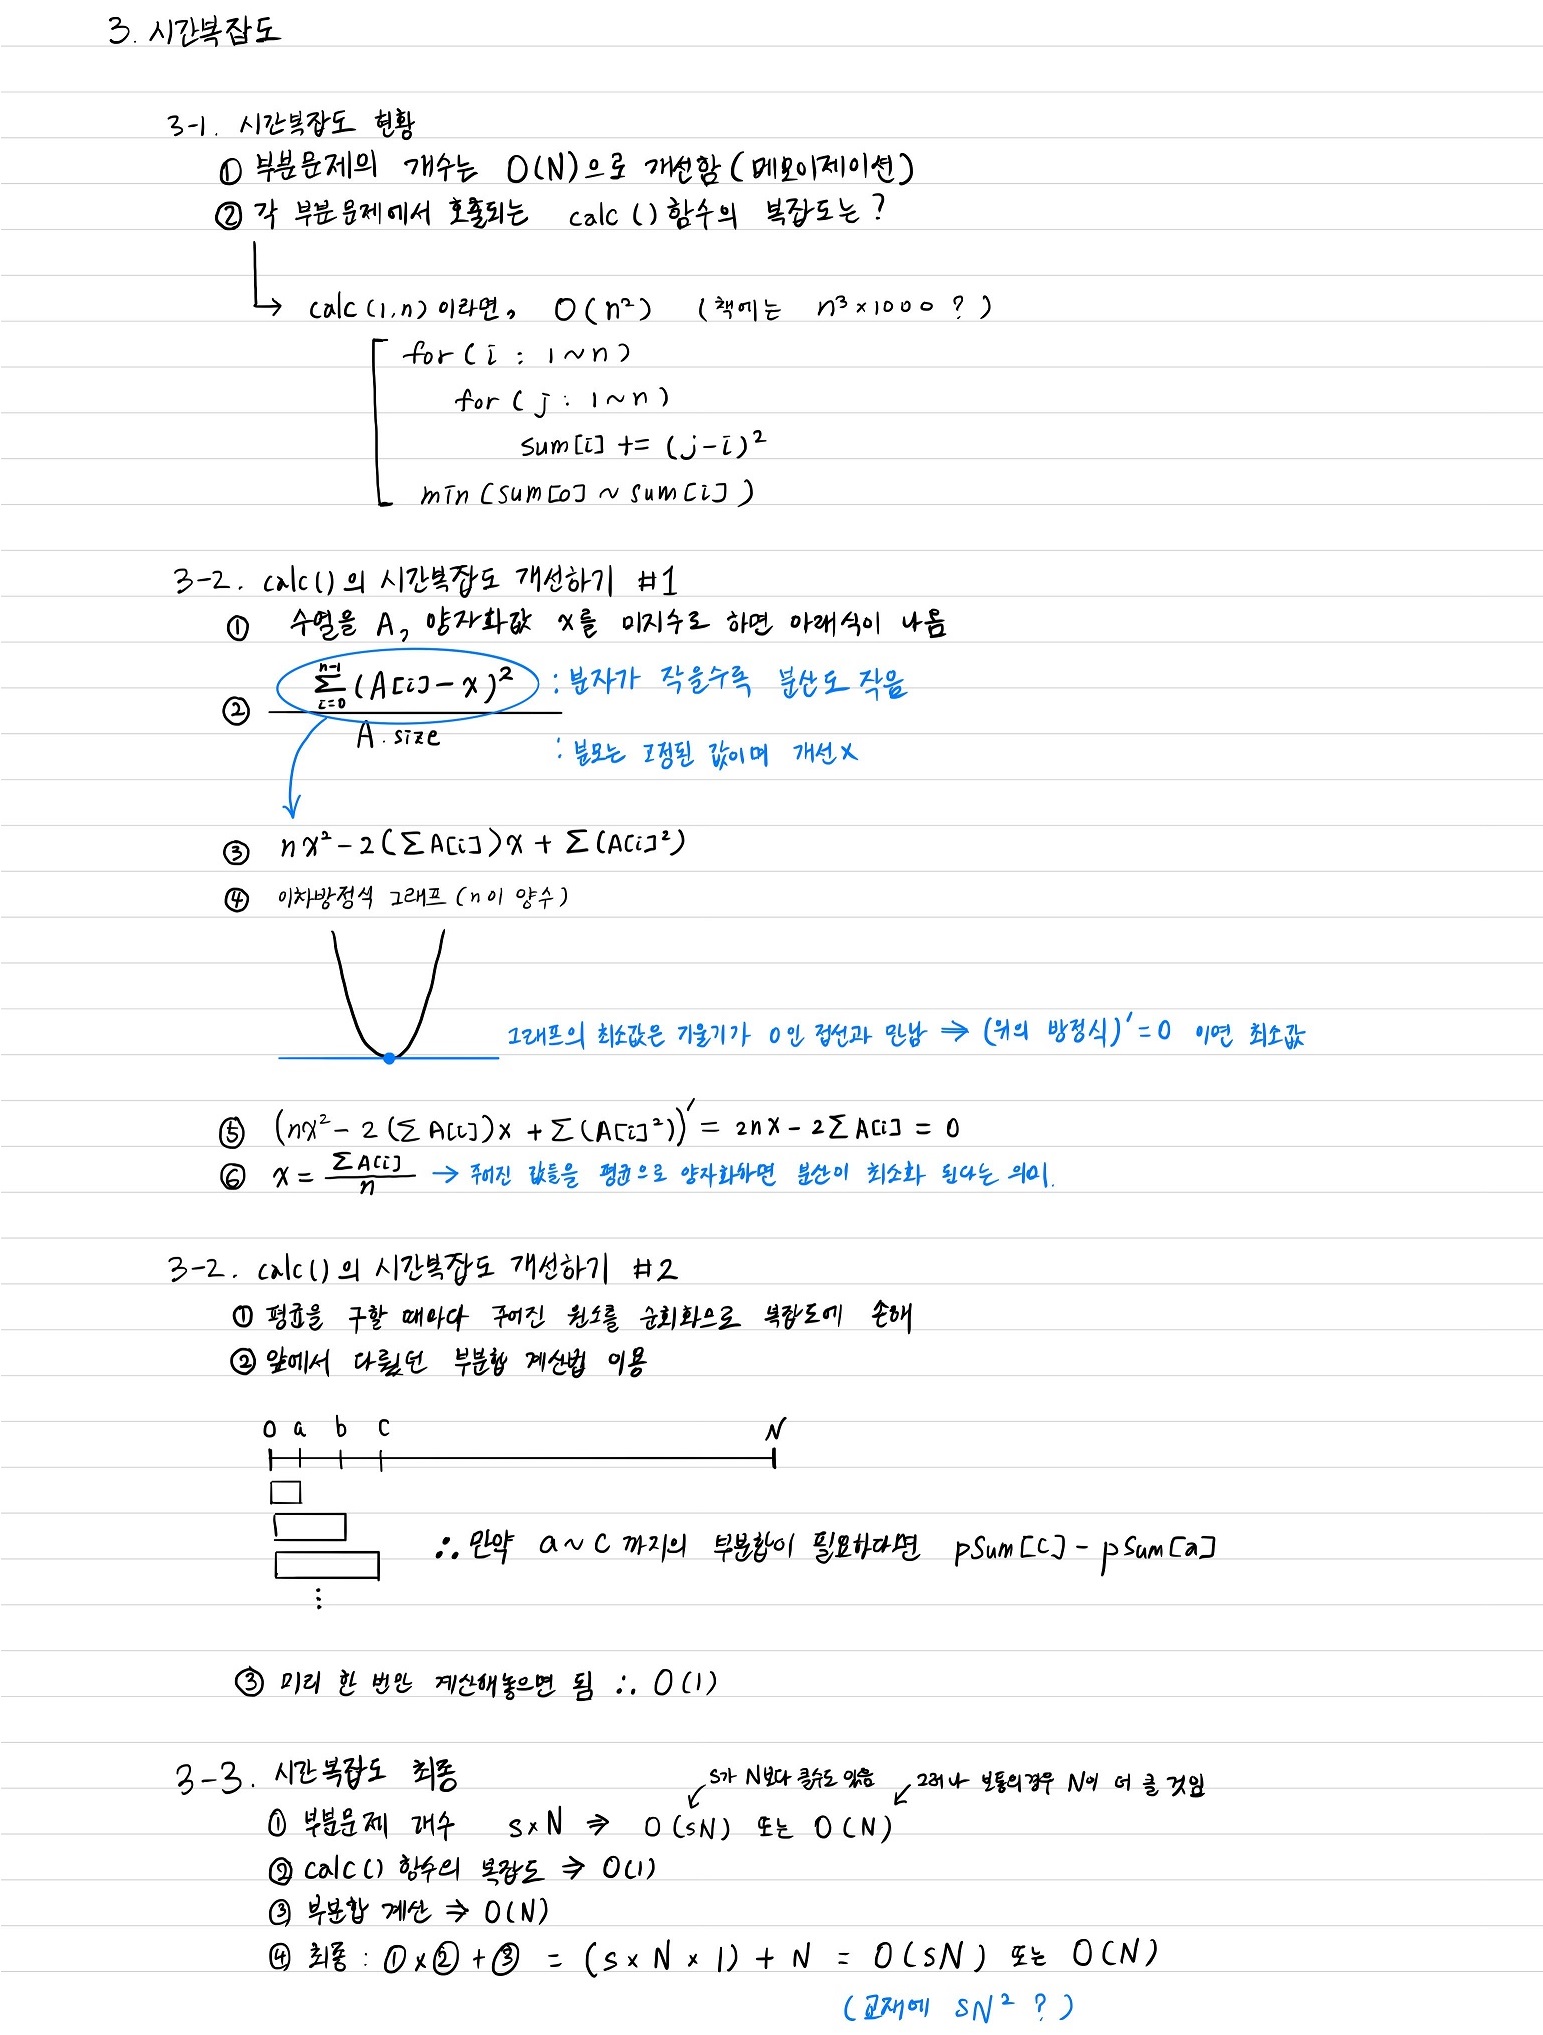 3. 시간복잡도
3-1. 시간복잡도 현황
① 부분문제의 개수는 O(N)으로 개선함 (메모이제이션)
② 각 부분문제에서 호출되는 calc()함수의 복잡도는?
calc(1,n)이라면, O(n²) (책에는 n³×1000 ?)
for(i : 1~n)
for(j : 1~n)
sum[i] += (j-i)²
min(sum[0] ~ sum[i])
3-2. calc()의 시간복잡도 개선하기 #1
① 수열을 A, 양자화값 x를 미지수로 하면 아래식이 나옴
② n-1 Σ i=0 (A[i]-x)² : 분자가 작을수록 분산도 작음
A.size : 분모는 고정된 값이며 개선X
③ nx²-2(ΣA[i])x + Σ(A[i]²)
④ 이차방정식 그래프 (n이 양수)
그래프의 최소값은 기울기가 0인 접선과 만남 ⇒ (위의 방정식)′=0 이면 최소값
⑤ (nx²-2(ΣA[i])x + Σ(A[i]²))′ = 2nx-2ΣA[i] = 0
⑥ x = ΣA[i] / n → 주어진 값들을 평균으로 양자화하면 분산이 최소화 된다는 의미.
3-2. calc()의 시간복잡도 개선하기 #2
① 평균을 구할 때마다 주어진 원소를 순회화으로 복잡도에 손해
② 앞에서 다뤘던 부분합 계산법 이용
0 a b c N
∴ 만약 a~c 까지의 부분합이 필요하다면 pSum[c] - pSum[a]
⋮
③ 미리 한 번만 계산해놓으면 됨 ∴ O(1)
3-3. 시간복잡도 최종
s가 N보다 클수도 있음 그러나 보통의경우 N이 더 클 것임
① 부분문제 개수 s×N ⇒ O(sN) 또는 O(N)
② calc() 함수의 복잡도 ⇒ O(1)
③ 부분합 계산 ⇒ O(N)
④ 최종 : ①×②+③ = (s×N×1)+N = O(sN) 또는 O(N)
(교재에 sN² ?)